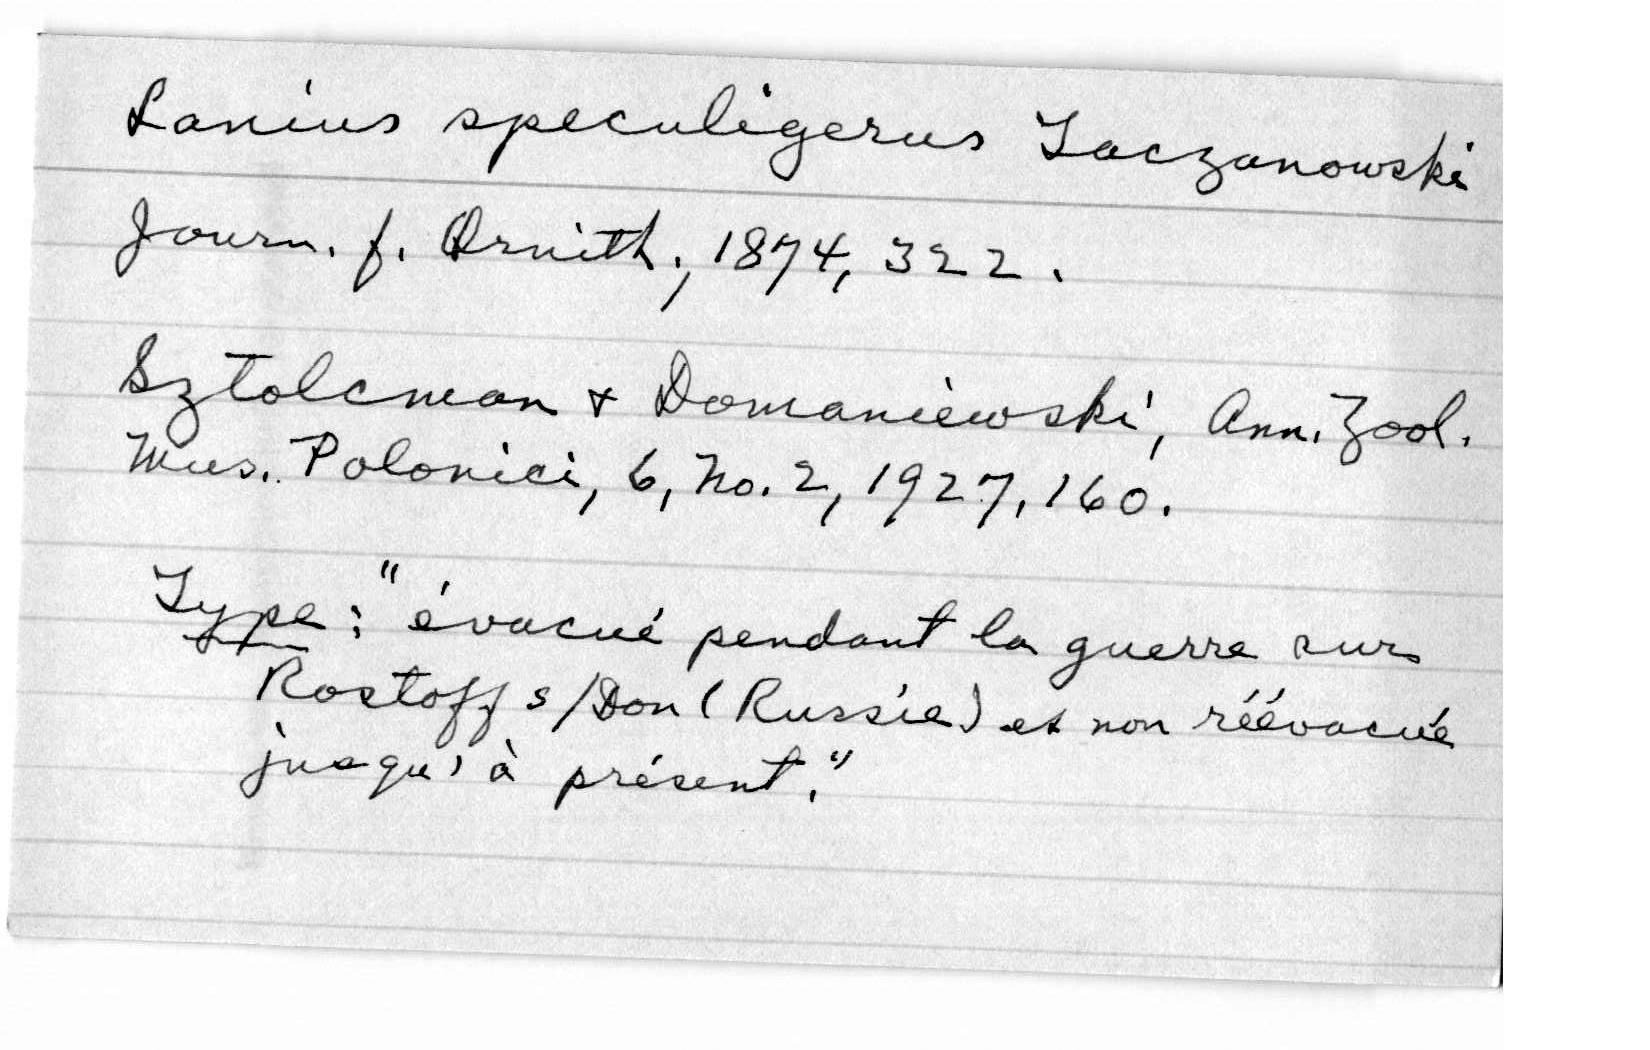 Lanius speculigerus Taczanowski
Journ. f. Ornith., 1874, 322.
Sztolcman & Domaniewski, Ann. Zool.
Mus. Polonici, 6, No. 2, 1927, 160.
Type: "évacué pendant la guerre sur
Rostoff s/Don (Russie) et non réévacué
jusqu'à présent."